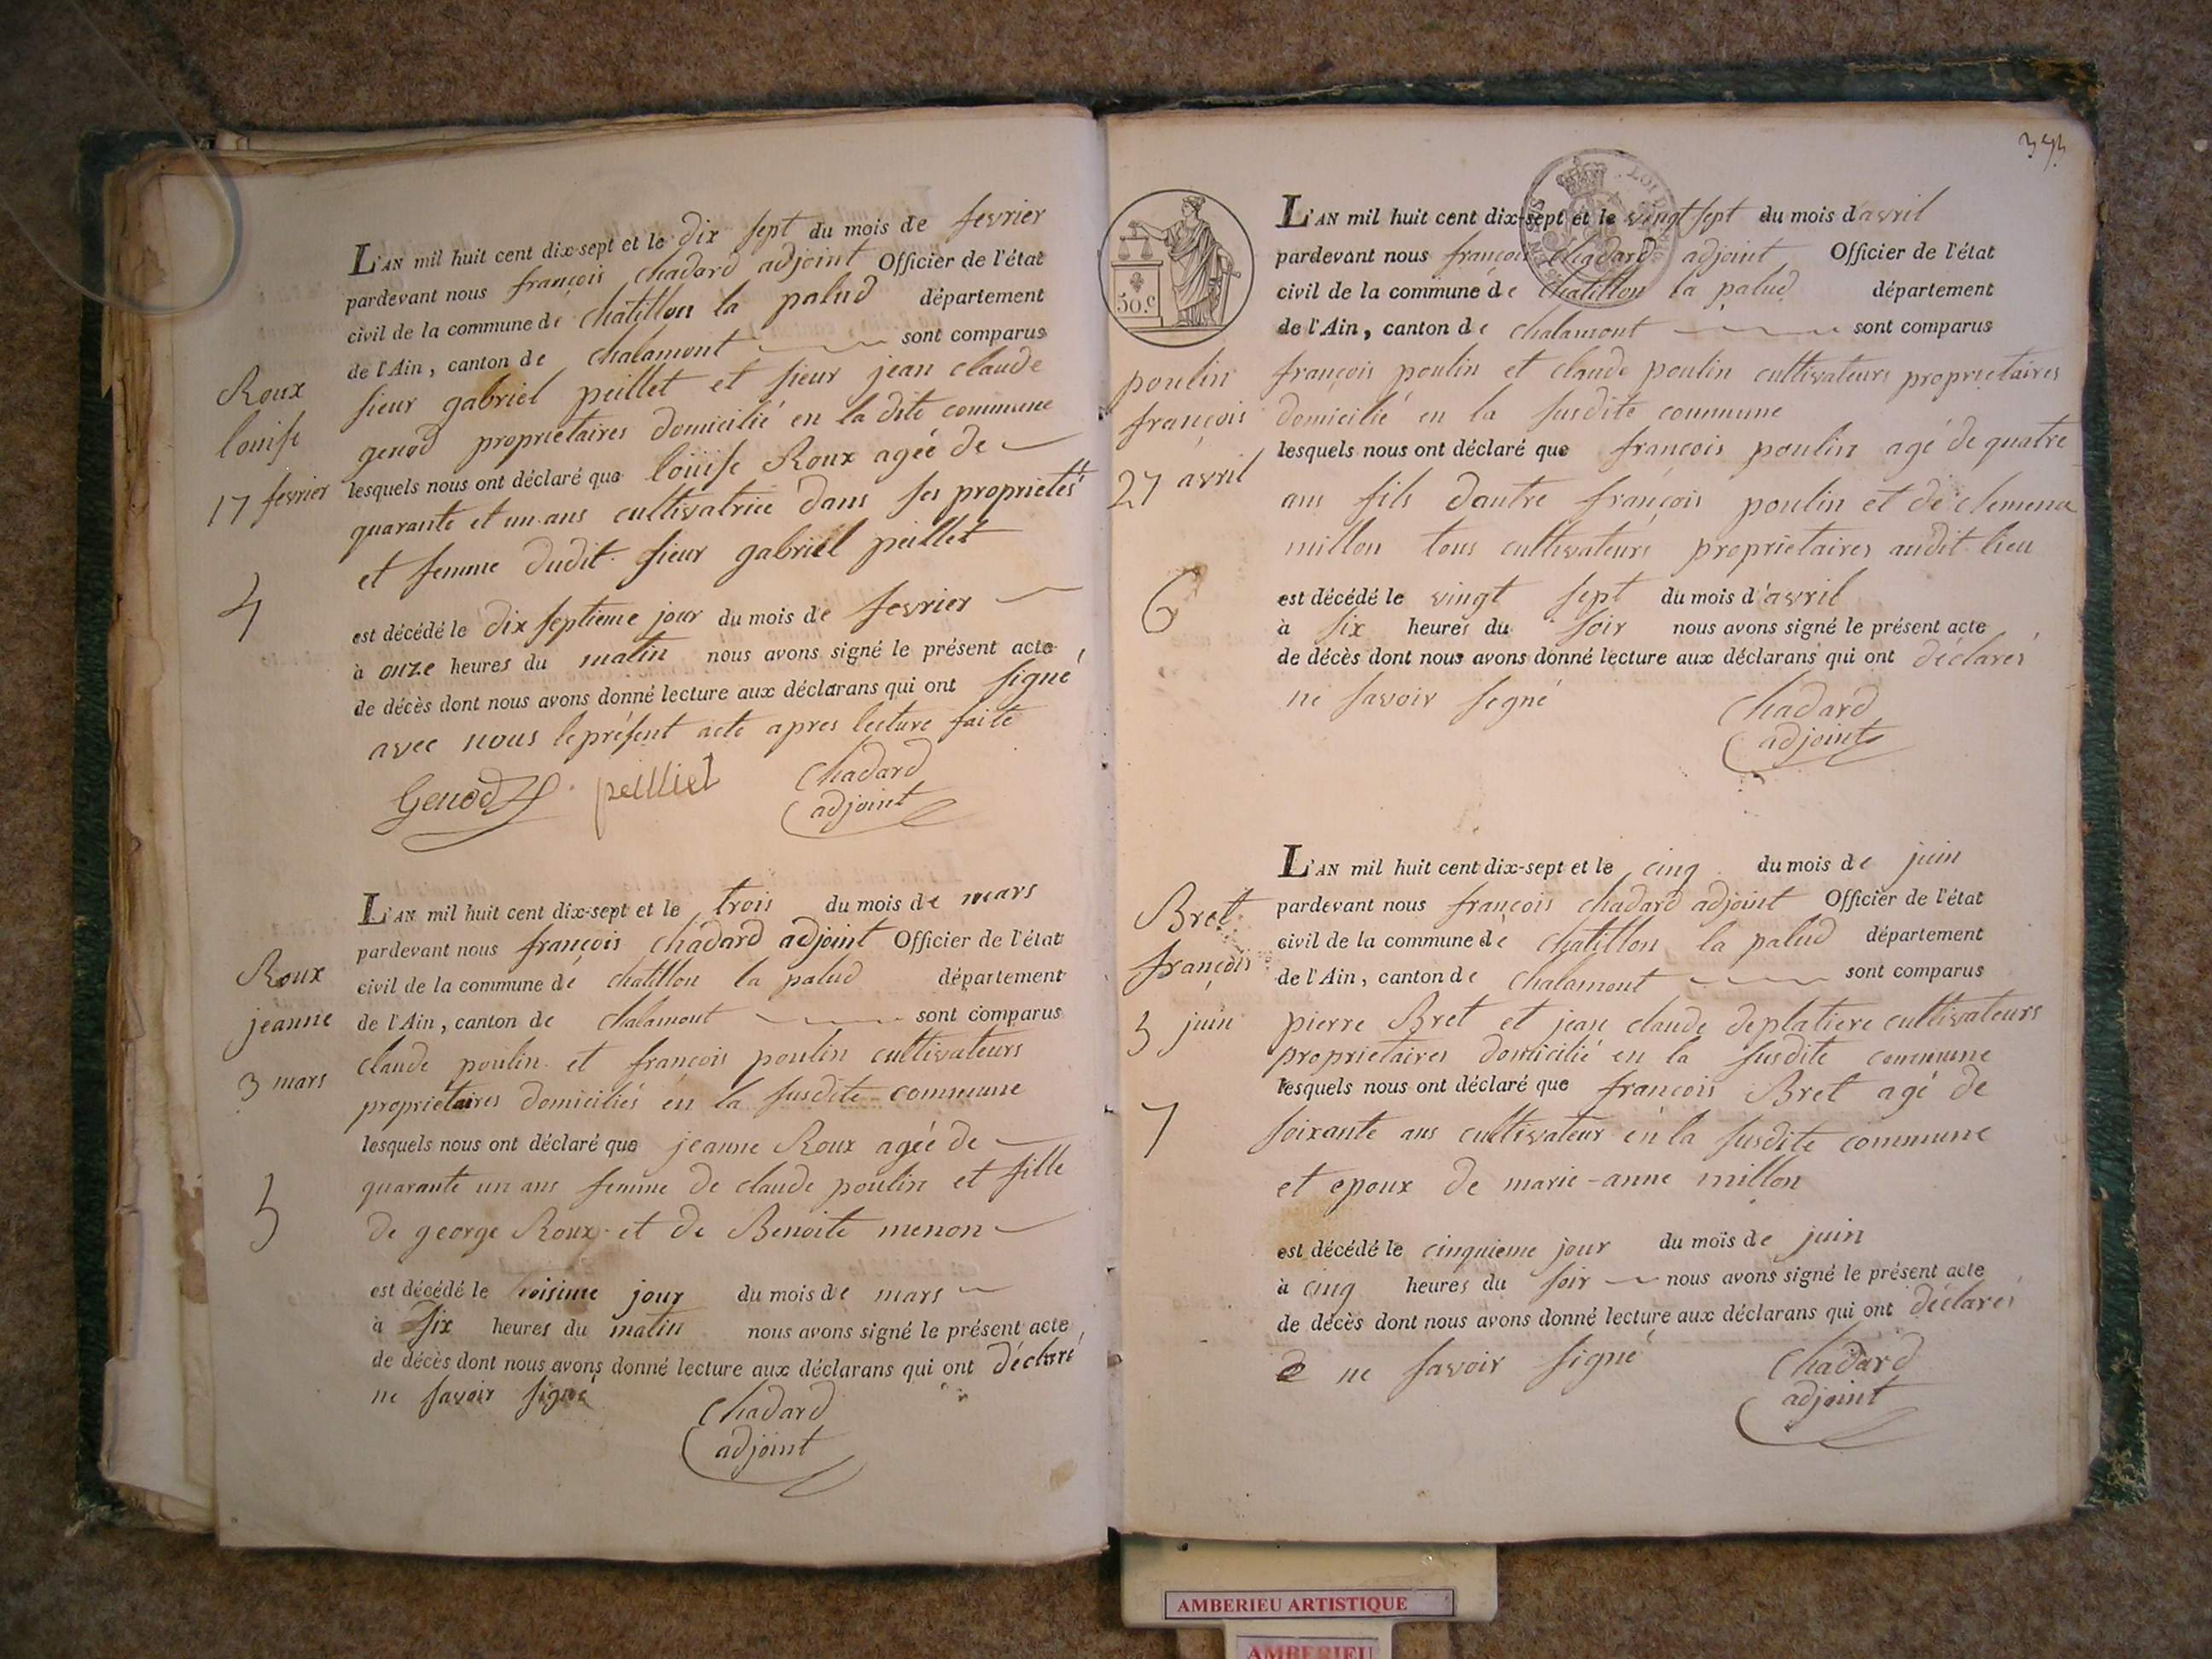 L'AN mil huit cent dix-sept et le dix sept du mois de fevrier
pardevant nous françois chadard adjoint Officier de l'état
civil de la commune de chatillon la palud département
de l'Ain, canton de chalamont sont comparus
sieur gabriel peillet et sieur jean claude
genod proprietaires domicilié en la dite commune
lesquels nous ont déclaré que loüise Roux agée de
quarante et un ans cultivatrice dans ses proprietés
et femme dudit sieur gabriel peillet
est décédé le dix septieme jour du mois de fevrier
à onze heures du matin nous avons signé le présent acte
de décès dont nous avons donné lecture aux déclarans qui ont signé
avec nous le présent acte apres lecture faite
Genod peilliet chadard
adjoint
Roux
louise
17 fevrier
4
L'AN mil huit cent dix-sept et le trois du mois de mars
pardevant nous françois chadard adjoint Officier de l'état
civil de la commune de chatillon la palud département
de l'Ain, canton de chalamont sont comparus
claude poulin et francois poulin cultivateurs
proprietaires domiciliés en la susdite commune
lesquels nous ont déclaré que jeanne Roux agée de
quarante un ans femme de claude poulin et fille
de george Roux et de Benoite menon
est décédé le troisime jour du mois de mars
à six heures du matin nous avons signé le présent acte
de décès dont nous avons donné lecture aux déclarans qui ont déclaré
ne savoir signé
chadard
adjoint
Roux
jeanne
3 mars
5
L'AN mil huit cent dix-sept et le vingt sept du mois d'avril
pardevant nous françois chadard adjoint Officier de l'état
civil de la commune de chatillon la palud département
de l'Ain, canton de chalamont sont comparus
françois poulin et claude poulin cultivateurs proprietaires
domicilié en la susdite commune
lesquels nous ont déclaré que françois poulin agé de quatre
ans fils dautre françois poulin et de clemence
millon tous cultivateurs proprietaires audit lieu
est décédé le vingt sept du mois d'avril
à six heures du soir nous avons signé le présent acte
de décès dont nous avons donné lecture aux déclarans qui ont declarés
ne savoir segné
chadard
adjoint
50 c.
poulin
françois
27 avril
6
L'AN mil huit cent dix-sept et le cinq du mois de juin
pardevant nous françois chadard adjoint Officier de l'état
civil de la commune de chatillon la palud département
de l'Ain, canton de chalamont sont comparus
pierre Bret et jean claude deplatiere cultivateurs
proprietaires domicilié en la susdite commune
lesquels nous ont déclaré que francois Bret agé de
soixante ans cultivateur en la susdite commune
et epoux de marie-anne millon
est décédé le cinquieme jour du mois de juin
à cinq heures du soir nous avons signé le présent acte
de décès dont nous avons donné lecture aux déclarans qui ont déclarés
ne savoir signé
chadard
adjoint
Bret
françois
5 juin
7
AMBERIEU ARTISTIQUE
AMBERIEU